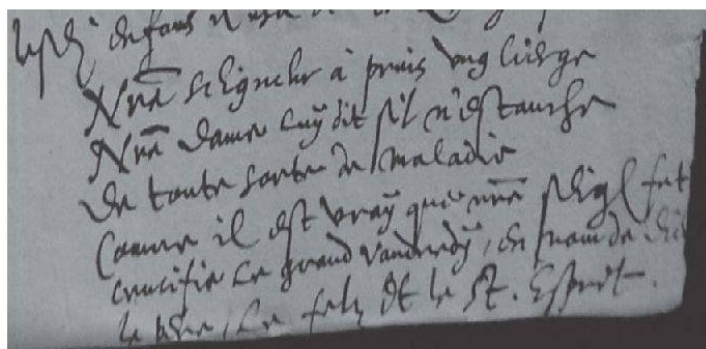 enfans
Nre Seigneur à prins ung cierge
Nre dame luy dit s'il n'estanche
de toute sorte de maladie
Comme il est vray que nre seigr fut
crucifie le grand vandredy, en nom de Dieu
le pere, le filz Et le St. Esprit.